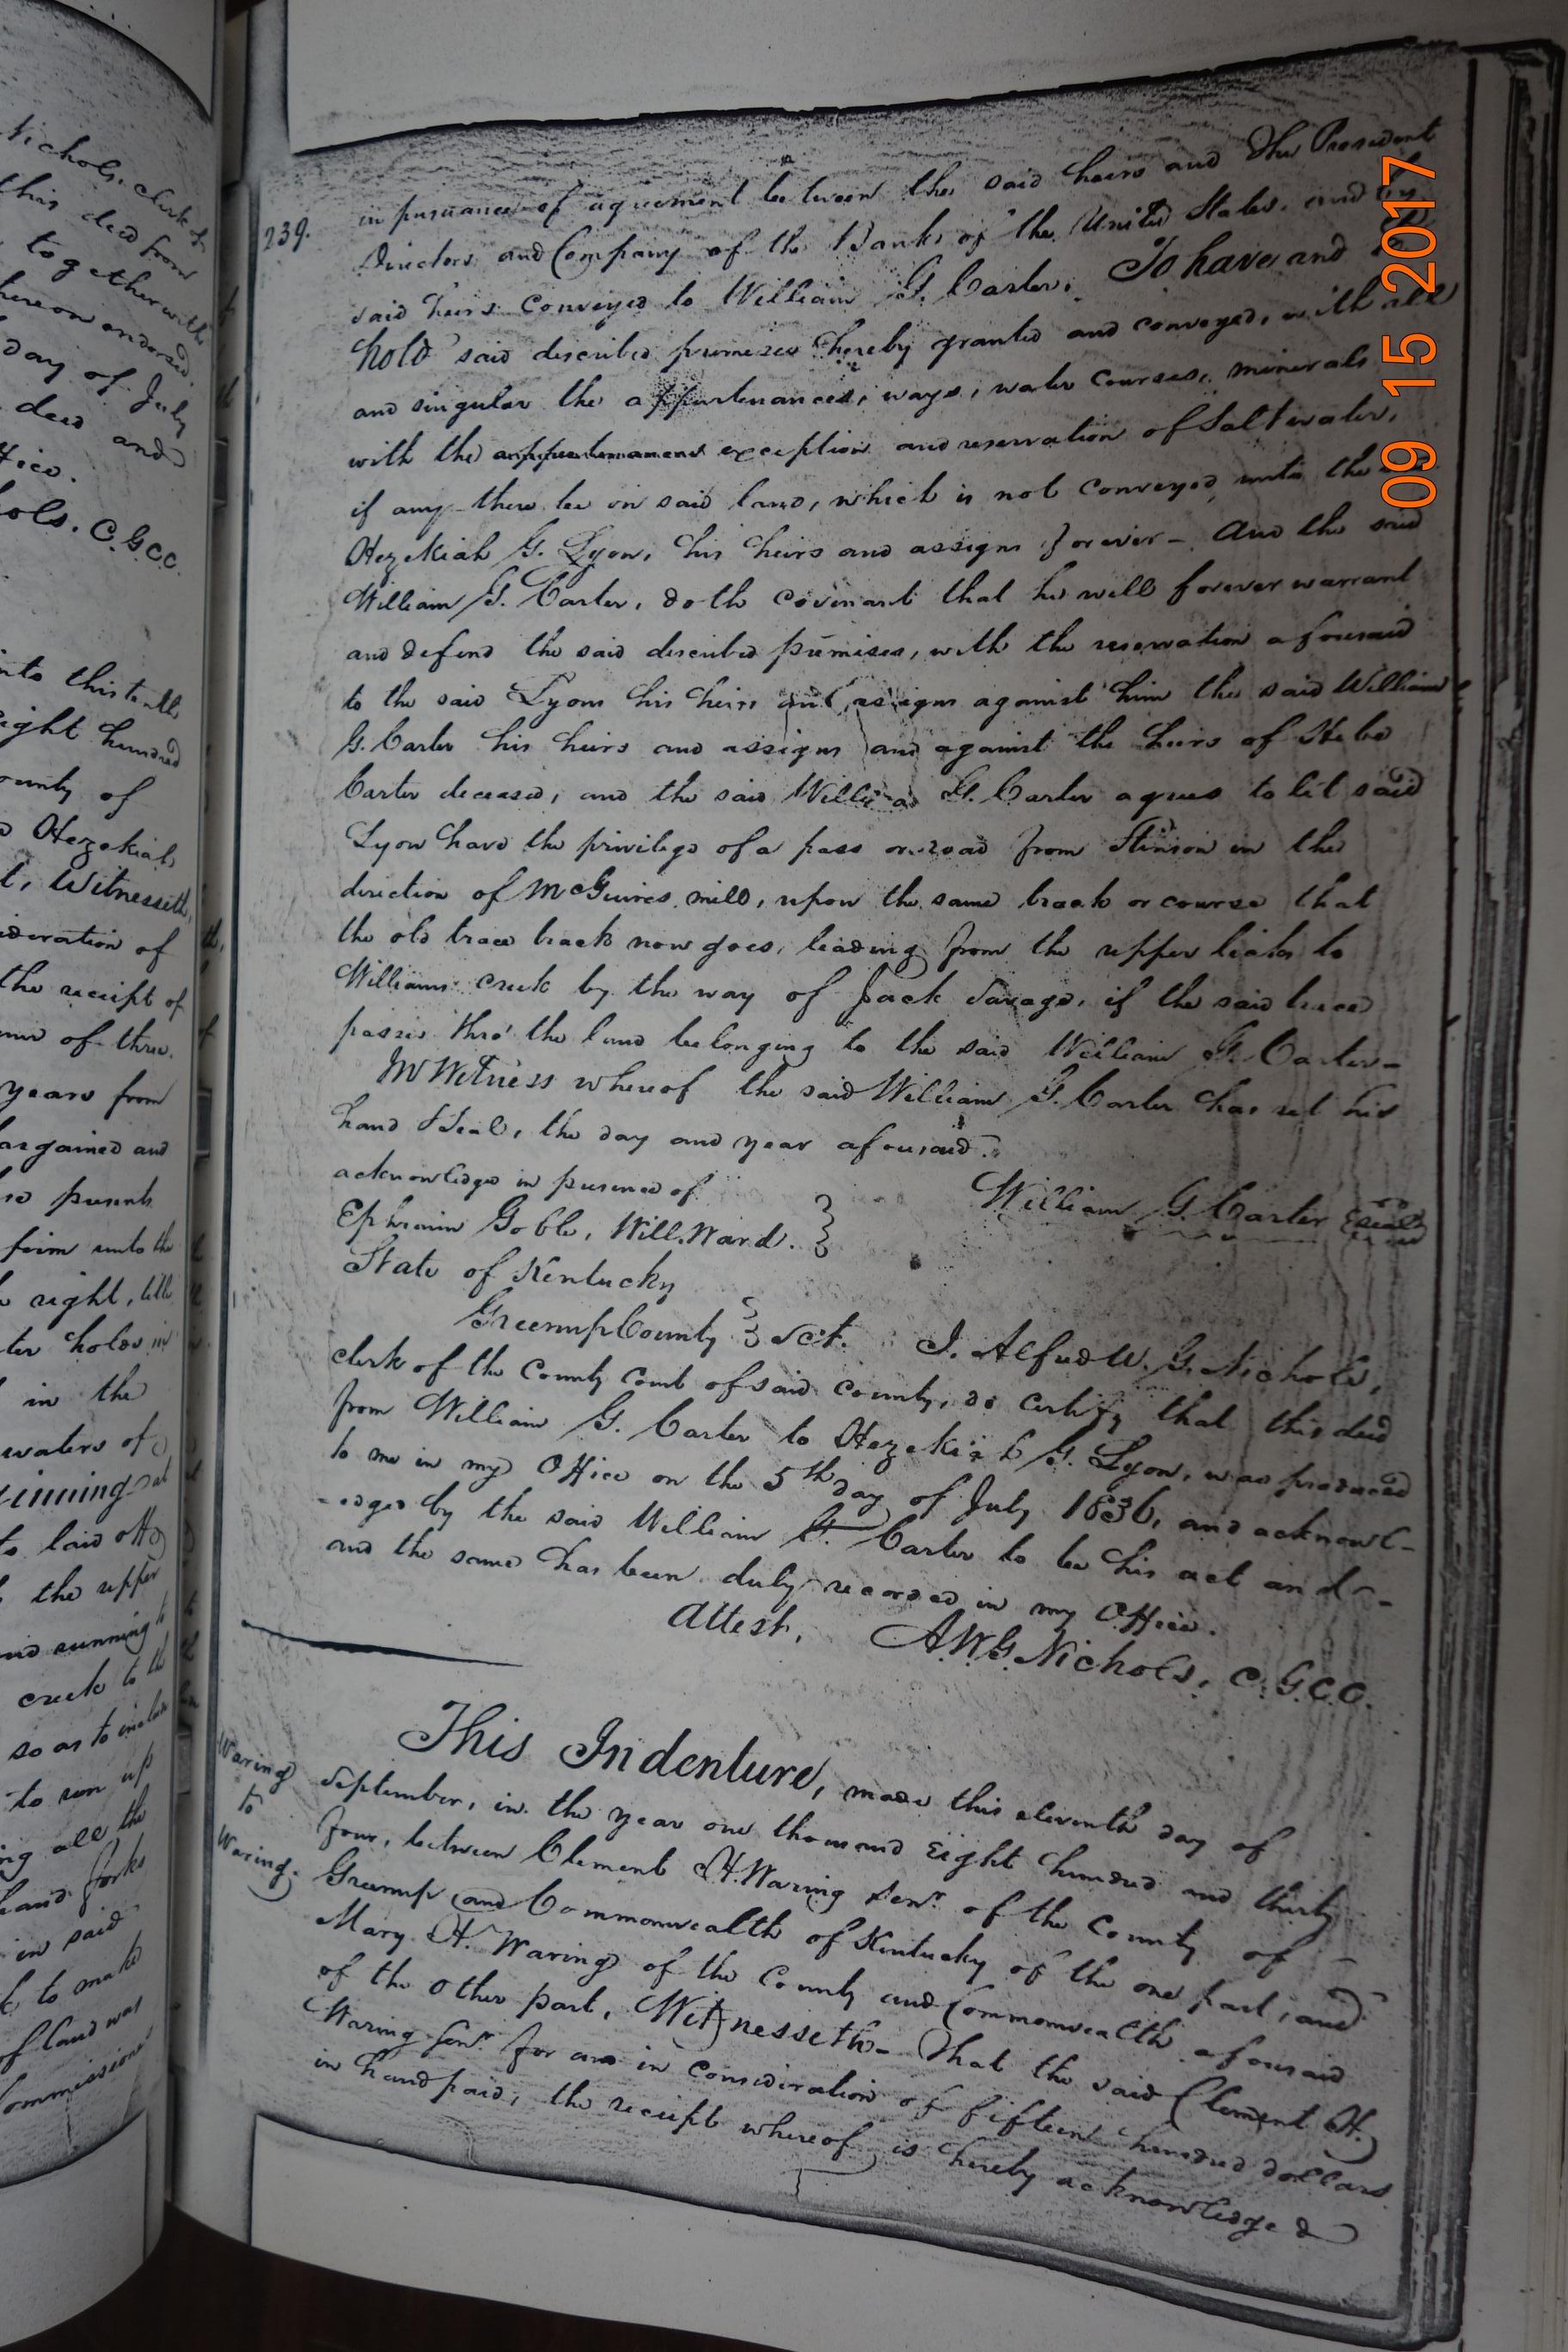 Nichols, clerk of
this deed from
together with
hereon endorsed.
day of July
deed and
ffice.
ols. C.G.C.C.
into this tenth
eight hundred
ounty of
Hezekiah
t, Witnesseth,
ideration of
the receipt of
um of three
years from
bargained and
se presents
firm unto the
right, title
ter holds in
in the
waters of
inning at
to laid off
the upper
and running
creek to the
so as to include
to run up
ng all the
hand forks
in said
k to make
of land was
ommissions
239.
in pursuance of agreement between the said heirs and the President
Directors and Company of the Bank of the United States, and by
said heirs conveyed to William G. Carter. To have and to
hold said described premises hereby granted and conveyed, with all
and singular the appurtenances, ways, water courses, minerals
with the appurtenances exception and reservation of Salt water,
if any there be in said land, which is not conveyed unto the
Hezekiah G. Lyon, his heirs and assigns forever - And the said
William G. Carter, doth covenant that he will forever warrant
and defend the said described premises, with the reservation aforesaid
to the said Lyon his heirs and assigns against him the said William
G. Carter his heirs and assigns and against the heirs of Hebe
Carter deceased, and the said William G. Carter agrees to let said
Lyon have the privilege of a pass or road from Stinson in the
direction of McGuires mill, upon the same track or course that
the old trace track now goes, leading from the upper licks to
Williams creek by the way of Jack Savage, if the said trace
passes thro' the land belonging to the said William G. Carter -
In Witness whereof the said William G. Carter has set his
hand & Seal, the day and year aforesaid.
acknowledged in presence of
William G. Carter {seal}
Ephraim Goble, Will. Ward. }
State of Kentucky
Greenup County } Sct. I. Alfred W. G. Nichols,
clerk of the County Court of said county, do certify that this deed
from William G. Carter to Hezekiah G. Lyon, was produced
to me in my Office on the 5th day of July 1836, and acknowl-
-edged by the said William G. Carter to be his act and -
and the same has been duly recorded in my Office.
Attest, A.W.G. Nichols, C.G.C.C.
Waring
to
Waring.
This Indenture, made this eleventh day of
September, in the year one thousand Eight hundred and thirty
four, between Clement H. Waring Senr. of the County of
Greenup and Commonwealth of Kentucky of the one part, and
Mary H. Waring of the County and Commonwealth aforesaid
of the other part, Witnesseth - That the said Clement H.
Waring Senr. for and in consideration of fifteen hundred dollars
in hand paid, the receipt whereof is hereby acknowledged
09 15 2017